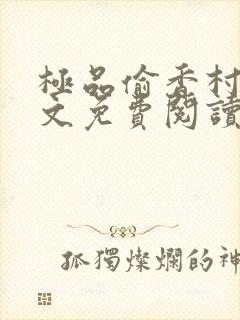 極品偷香村
文免費閱讀
孤獨燦爛的神